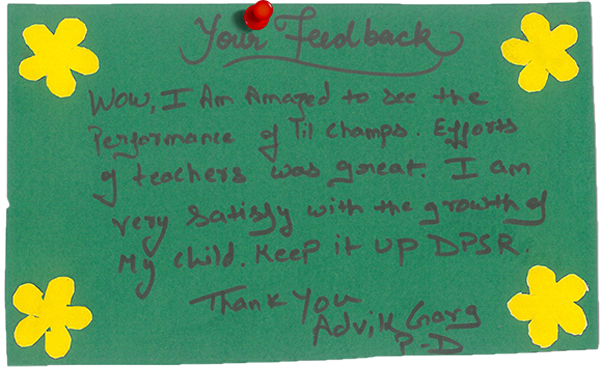 Your Feedback
Wow, I Am Amazed to see the
Performance of Til Champs. Efforts
of teachers was great. I am
very satisfy with the growth of
My child. Keep it up DPSR.
Thank You
Advik Garg
P-D